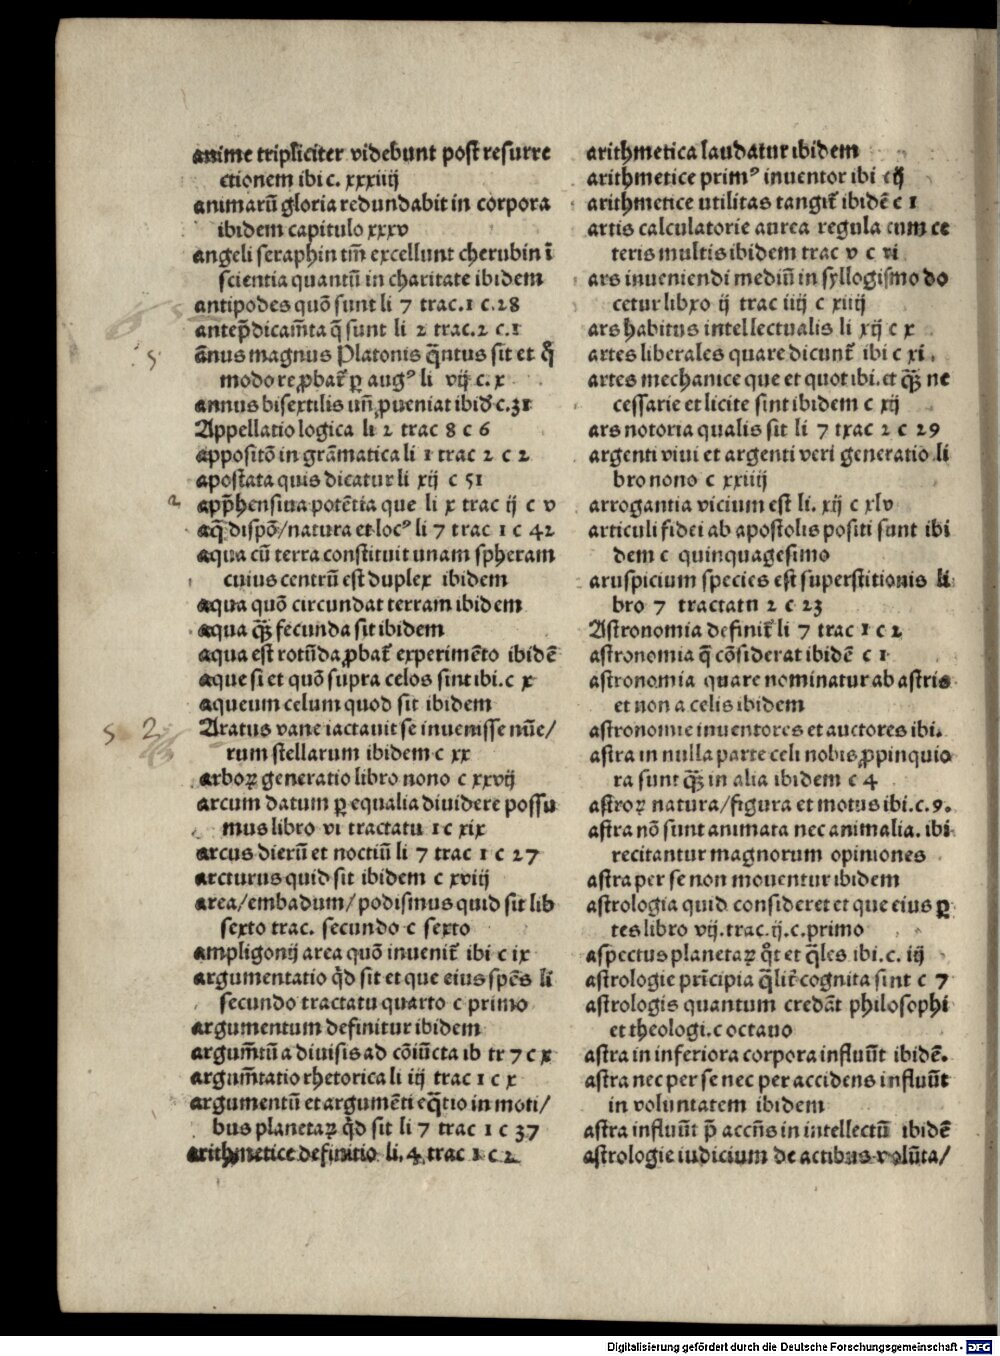 anime tripliciter videbunt post resurre
ctionem ibi c. xxxiiij
animarū gloria redundabit in corpora
ibidem capitulo xxxv
angeli seraphin tm̄ excellunt cherubin ī
scientia quantū in charitate ibidem
antipodes quō sunt li 7 trac.1 c.28
antep̄dicam̄ta q̄ sunt li 2 trac.2 c.1
5
ānus magnus Platonis q̄ntus sit et q̊
modo re ꝓbat᷑ ꝑ augꝰ li vij c. x
annus bisextilis un̄ ꝓueniat ibid c.31
Appellatio logica li 2 trac 8 c 6
appositō in grāmatica li 1 trac 2 c 2
apostata quis dicatur li xij c 51
2
app̄hensiua potētia que li x trac ij c v
aq̄ dispō/natura et locꝰ li 7 trac 1 c 42
aqua cū terra constituit unam spheram
cuius centrū est duplex ibidem
aqua quō circundat terram ibidem
aqua qꝫ̄ fecunda sit ibidem
aqua est rotūda ꝓbat᷑ experimēto ibidē
aque si et quō supra celos sint ibi.c x
aqueum celum quod sit ibidem
5 2
Aratus vane iactauit se inuenisse nūe/
rum stellarum ibidem c xx
arboꝝ generatio libro nono c xxvij
arcum datum ꝑ equalia diuidere possu
mus libro vi tractatu 1 c xix
arcus dierū et noctiū li 7 trac 1 c 27
arcturus quid sit ibidem c xviij
area/embadum/podismus quid sit lib
sexto trac. secundo c sexto
ampligonij area quō inuenit᷑ ibi c ix
argumentatio q̇d sit et que eius spēs li
secundo tractatu quarto c primo
argumentum definitur ibidem
argum̄tū a diuisis ad cōiūcta ib tr 7 c x
argum̄tatio rhetorica li iij trac 1 c x
argumentū et argumēti eq̄tio in moti/
bus planetaꝝ q̇d sit li 7 trac 1 c 37
arithmetice definitio li. 4 trac 1 c 2
arithmetica laudatur ibidem
arithmetice primꝰ inuentor ibi c ij
arithmetice utilitas tangit᷑ ibidē c 1
artis calculatorie aurea regula cum ce
teris multis ibidem trac v c vi
ars inueniendi mediū in syllogismo do
cetur libro ij trac iiij c xiiij
ars habitus intellectualis li xij c x
artes liberales quare dicunt᷑ ibi c xi.
artes mechanice que et quot ibi. et qꝫ̄ ne
cessarie et licite sint ibidem c xij
ars notoria qualis sit li 7 trac 2 c 29
argenti vivi et argenti veri generatio li
bro nono c xxiiij
arrogantia vicium est li. xij c xlv
articuli fidei ab apostolis positi sunt ibi
dem c quinquagesimo
aruspicium species est superstitionis li
bro 7 tractatu 2 c 23
Astronomia definit᷑ li 7 trac 1 c 2
astronomia q̄ cōsiderat ibidē c 1
astronomia quare nominatur ab astris
et non a celis ibidem
astronomie inuentores et auctores ibi.
astra in nulla parte celi nobis ꝓpinquio
ra sunt qꝫ̄ in alia ibidem c 4
astroꝝ natura/figura et motus ibi.c.9.
astra nō sunt animata nec animalia. ibi
recitantur magnorum opiniones
astra per se non mouentur ibidem
astrologia quid consideret et que eius ꝑ
tes libro vij.trac.ij.c.primo
aspectus planetaꝝ q̊t et q̄les ibi.c. iij
astrologie prīcipia q̄lit᷑ cognita sint c 7
astrologis quantum credāt philosophi
et theologi.c octauo
astra in inferiora corpora influūt ibidē.
astra nec per se nec per accidens influūt
in voluntatem ibidem
astra influūt p̄ accn̄s in intellectū ibidē
astrologie iudicium de actibus volūta/
Digitalisierung gefördert durch die Deutsche Forschungsgemeinschaft - DFG